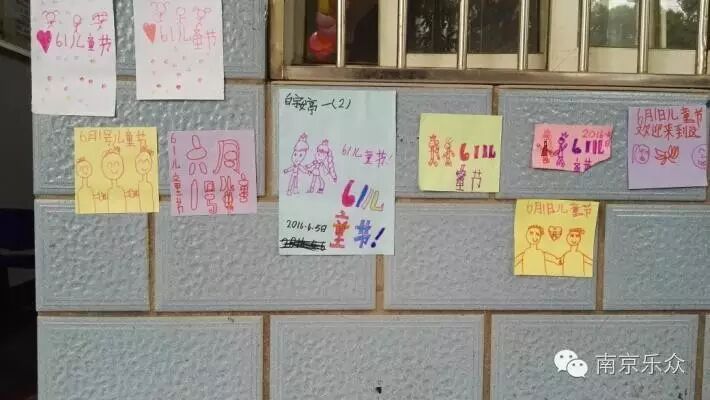 61儿童节
61儿童节
6月1号儿童节
61儿童节
六月
1号
一(2)
61儿童节!
61儿
童节!
2016.6.5日
61儿
童节
2016.6
61儿
童节
6月1日儿童节
欢迎来到这
6月1日儿童节
南京乐众